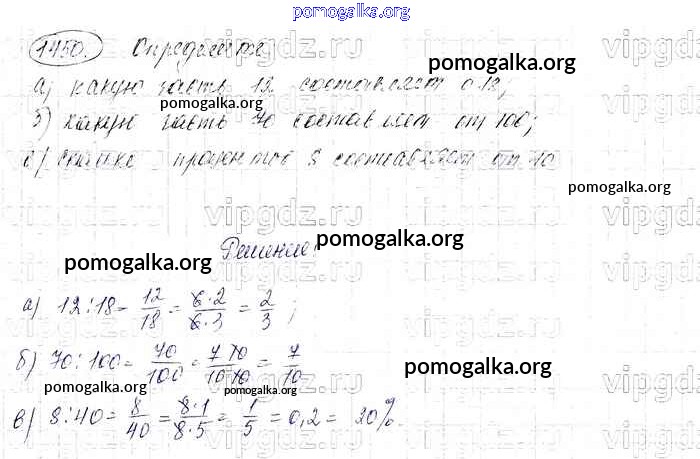 pomogalka.org
1450. Определите,
vipgdz.ru vipgdz.ru
а) какую часть 12 составляет от 18;
pomogalka.org pomogalka.org
б) какую часть 70 составляет от 100;
в) сколько процентов 8 составляет от 40
pomogalka.org
vipgdz.ru vipgdz.ru vipgdz.ru
Решение:
pomogalka.org
pomogalka.org
а) 12:18 = 12/18 = 6·2/6·3 = 2/3;
б) 70:100 = 70/100 = 7·10/10·10 = 7/10
pomogalka.org
pomogalka.org pomogalka.org
в) 8:40 = 8/40 = 8·1/8·5 = 1/5 = 0,2 = 20%.